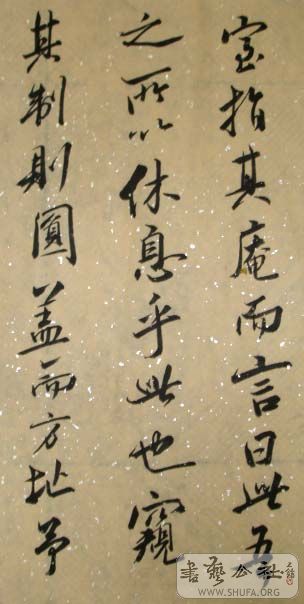 室指其庵而言曰此吾
之所以休息乎此也窺
其制則圓盖而方址予
書藝公社
WWW.SHUFA.ORG